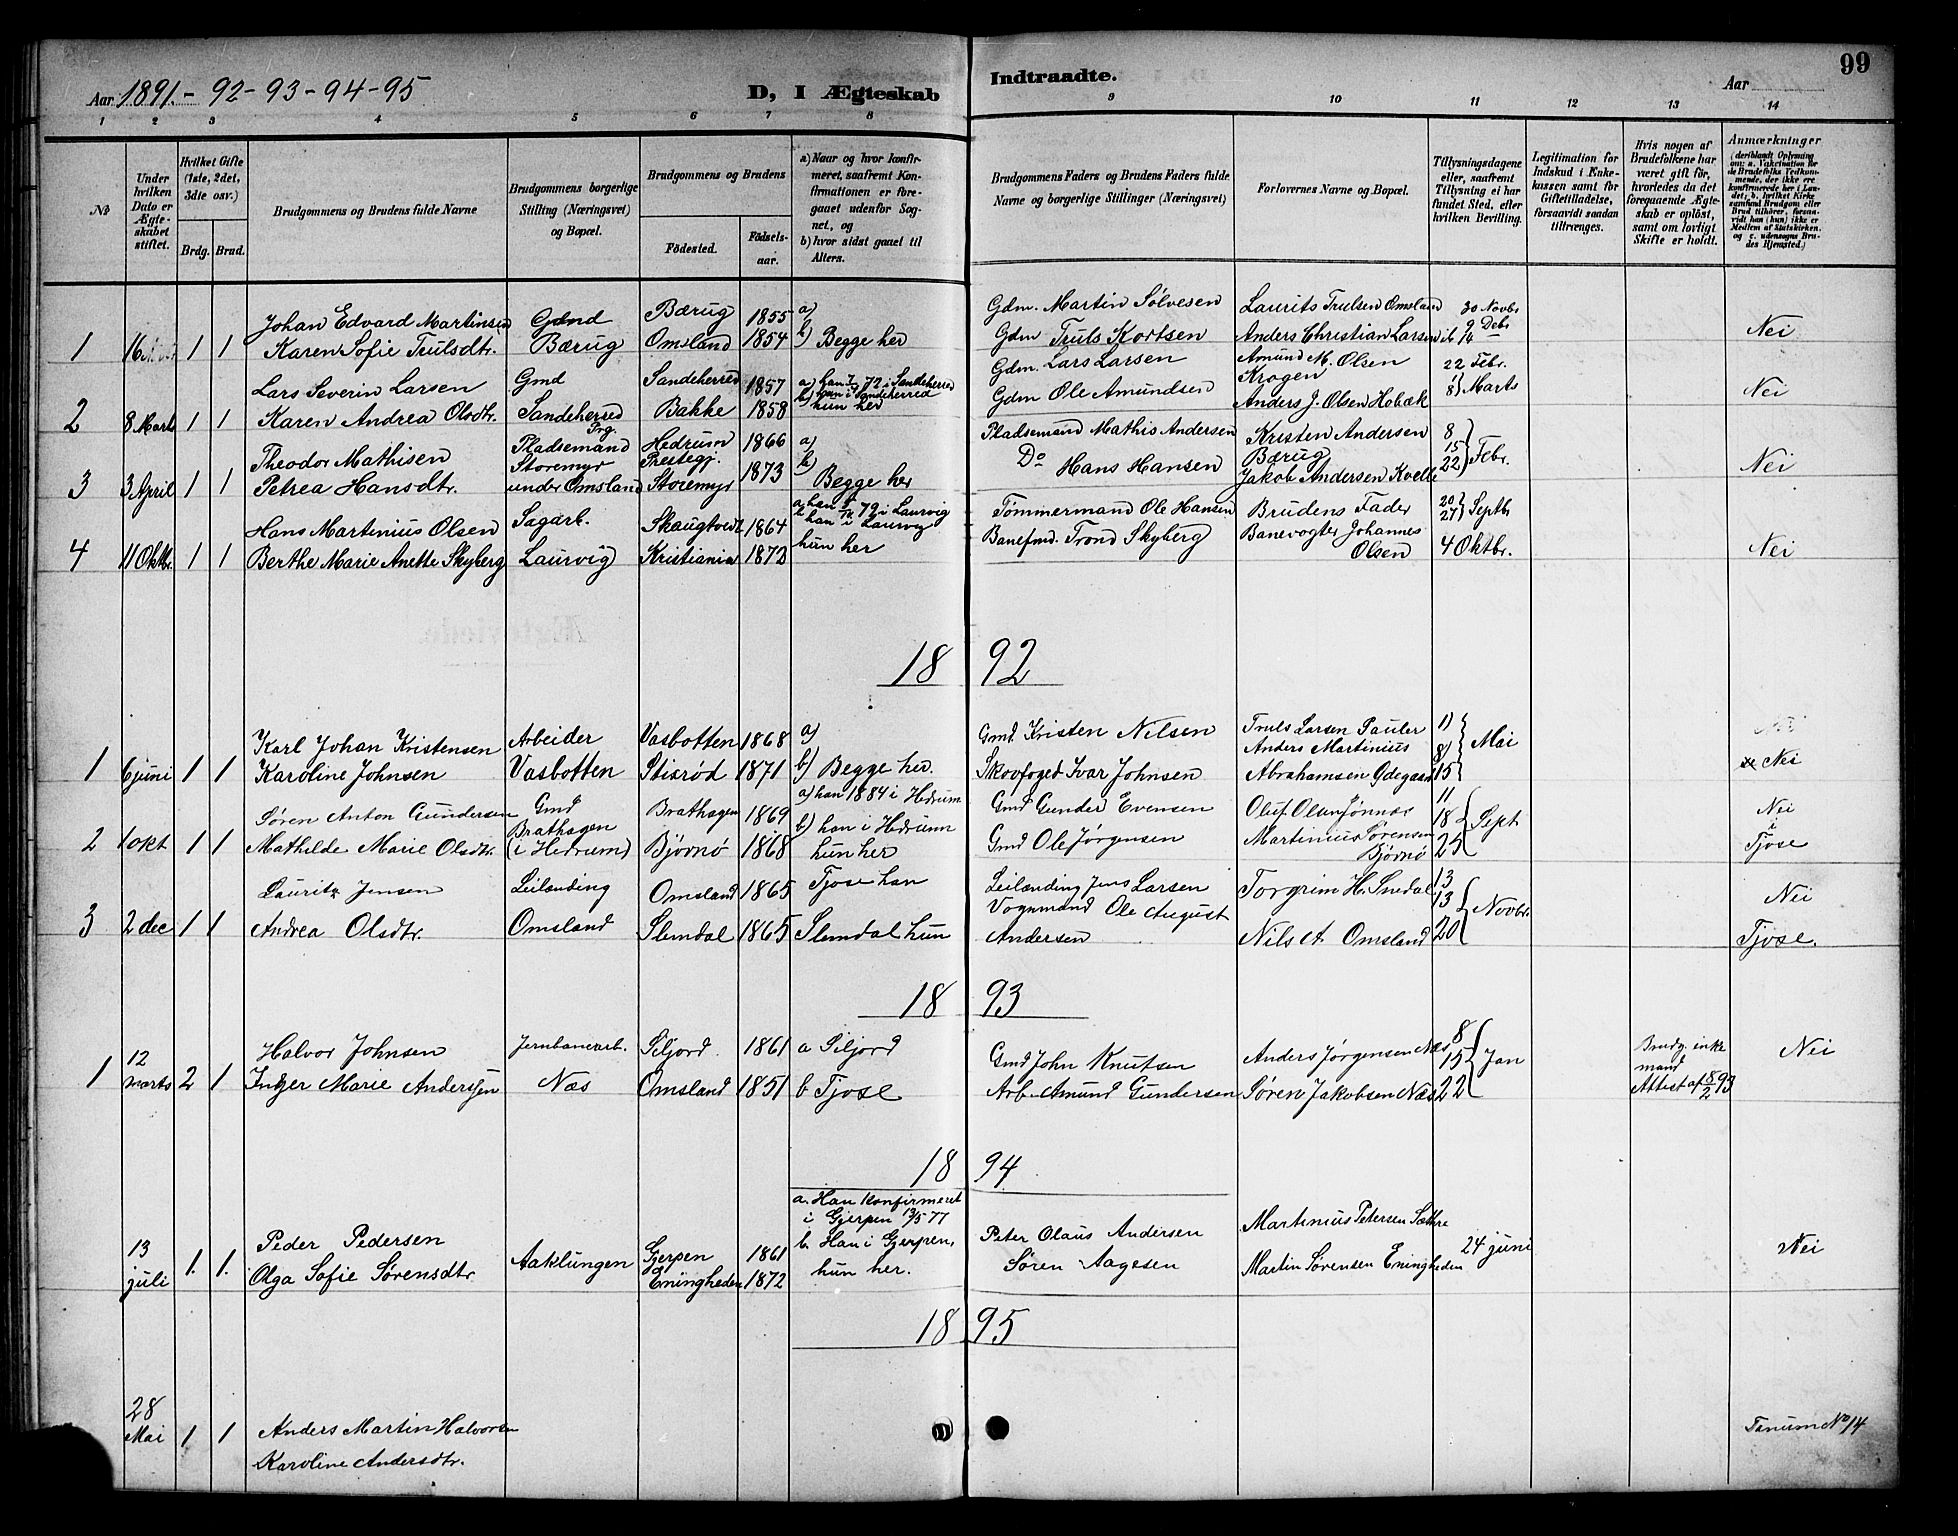 99
Aar 1891.-92-93-94-95
D, I Ægteskab
Indtraadte.
Aar
1 2 3 4 5 6 7 8 9 10 11 12 13 14
№
Under hvilken Dato er Ægteskabet stiftet.
Hvilket Gifte (1ste, 2det, 3die osv.)
Brdg. Brud.
Brudgommens og Brudens fulde Navne
Brudgommens borgerlige Stilling (Næringsvei) og Bopæl.
Brudgommens og Brudens
Födested.
Födselsaar.
a) Naar og hvor konfirmeret, saafremt Konfirmationen er foregaaet udenfor Sognet, og
b) hvor sidst gaaet til Alters.
Brudgommens Faders og Brudens Faders fulde Navne og borgerlige Stillinger (Næringsvei)
Forlovernes Navne og Bopæl.
Tillysningsdagene eller, saafremt Tillysning ei har fundet Sted, efter hvilken Bevilling.
Legitimation for Indskud i Enkekassen samt for Giftetilladelse, forsaavidt saadan tiltrænges.
Hvis nogen af Brudefolkene har været gift för, hvorledes da det foregaaende Ægteskab er oplöst, samt om lovligt Skifte er holdt.
Anmærkninger
(deriblandt Oplysning om: a. Vaccination for de Brudefolks Vedkommende, der ikke ere konfirmerede her i Landet, b. hvilket Kirkesamfund Brudgom eller Brud tilhörer, forsaavidt han (hun) ikke er Medlem af Statskirken, og c. udensogns Brudes Hjemsted.)
1 16 1 1 Johan Edvard Martinsen Gdmd Bærug 1855 a) Gdm. Martin Sølvesen Laurits Trulsen Omsland 30 Novbr
Karen Sofie Trulsdtr. Bærug Omsland 1854 b) Begge her Gdm Truls Kortsen Anders Christian Larsen ib 9 Debr 14 Nei
2 8 Marts 1 1 Lars Severin Larsen Gmd Sandeherred 1857 a) han 72 i Sandeherred Gdm. Lars Larsen Amund M. Olsen Krogen 22 Febr.
Karen Andrea Olsdtr. Sandeherred Bakke 1858 b) han i Sandeherred hun her Gdm Ole Amundsen Anders J. Olsen Holæk 1) 8) Marts Nei
3 3 April 1 1 Theodor Mathisen Pladsemand Hedrum Prestegj. 1866 a) Pladsemand Mathis Andersen Kristen Andersen Bærug 8 15 22 Febr.
Petrea Hansdtr. Storemyr under Omsland Storemyr 1873 b) Begge her Do Hans Hansen Jakob Andersen Kvelle Nei
4 11 Oktbr. 1 1 Hans Martinius Olsen Sagarb. Skaugtvedt 1864 a han 72 i Laurvig b han i Laurvig Tømmermand Ole Hansen Brudens Fader 20 27 Septbr
Berthe Marie Anette Skyberg Laurvig Kristiania 1872 hun her Banefmd. Trond Skyberg Banevogter Johannes Olsen 4 Oktbr. Nei
1892
1 6 juni 1 1 Karl Johan Kristensen Arbeider Vasbotten 1868 a) Gmd. Kristen Nilsen Truls Larsen Pauler 1) 8) 15 Mai
Karoline Johnsen Vasbotten Stisrød 1871 b) Begge her. Skovfoged Ivar Johnsen Anders Martinius Abrahamsen Ødegaard Nei
2 1 okt 1 1 Søren Anton Gundersen Gmd Brathagen 1869 a) han 1884 i Hedrum Gmd Gunder Evensen Oluf Olsen Jønnæs 11 18 25 Sept Nei
Mathilde Marie Olsdtr. Brathagen (i Hedrum) Bjørnø 1868 b) han i Hedrum hun her Gmd Ole Jørgensen Martinius Sørensen Bjørnø Tjose
3 2 dec 1 1 Lauritz Jensen Leilænding Omsland 1865 Tjose han Leilænding Jens Larsen Torgrim H. Snedal 13 13 20 Novbr. Nei
Andrea Olsdtr. Omsland Slemdal 1865 Slemdal hun Vognmand Ole August Andersen Nils A Omsland Tjose.
1893
1 12 marts 2 1 Halvor Johnsen Jernbanearb. Siljord. 1861 a Siljord Gmd John Knutsen Anders Jørgensen Næs 8 15 22 Jan Brudg. enkemand Nei
Inger Marie Anderssen Næs Omsland 1851 b Tjose Arb. Amund Gundersen Søren Jakobsen Næs Attest af 8/2 93
1894
13 juli 1. 1. Peder Pedersen Aaklungen Gjerpen 1861 a. Han konfirmeret i Gjerpen 13/5 77 Peter Olaus Andersen Martinius Petersen Sætre 24 juni Nei
Olga Sofie Sørensdtr. Eningheden 1872 b. Han i Gjerpen, hun her. Søren Aagesen Martin Sørensen Eningheden
1895
28 Mai 1 1 Anders Martin Halvorsen Tanum No 14
Karoline Andersdtr.